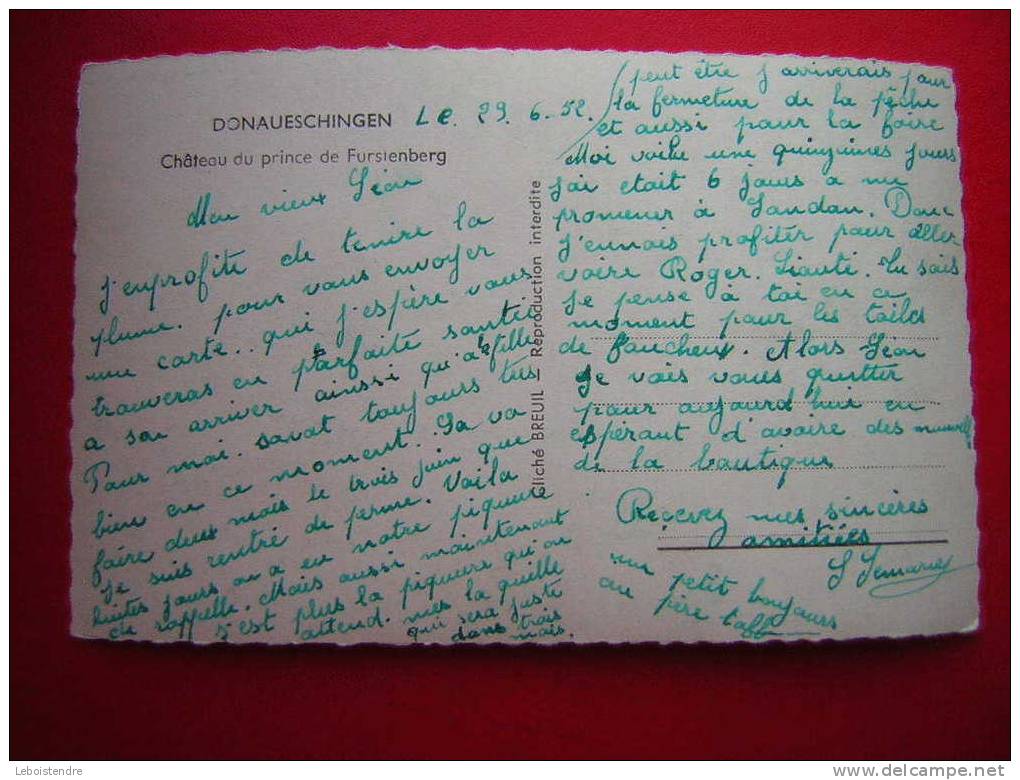 DONAUESCHINGEN
Château du prince de Furstenberg
Le. 29. 6. 52.
Mon vieux Léon
j'enprofite de tenire la
plume. pour vous envoyer
une carte.. qui j'espère vous
trouveras en parfaite santée
a son arriver ainssi qu'a ta fille
Pour moi. savat toujours très
bien en ce moment. Sa va
faire deux mois le trois juin que
Je suis rentré de perme. Voila
huites jours on a eu notre piqure
de rappelle. Mais aussi maintenant
s'est plus la piqure qu'on
attend. mes la quille
qui sera juste
dans trois
mois.
Cliché BREUIL — Reproduction interdite
peut être j'arriverais pour
la fermeture de la pêche
et aussi pour la foire
Moi voila une quinzines jours
j'ai etait 6 jours a me
promener à Landau. Donc
J'ennais profiter pour aller
voire Roger. Liauté. Tu sais
Je pense à toi en ce
moment pour les
de faucheux. Alors Léon
Je vais vous quitter
pour aujourd'hui en
espérant d'avoire des nouvell
de la boutique
Recevez mes sincères
amitiées
un petit bonjours
au père
Leboistendre
delcampe.net